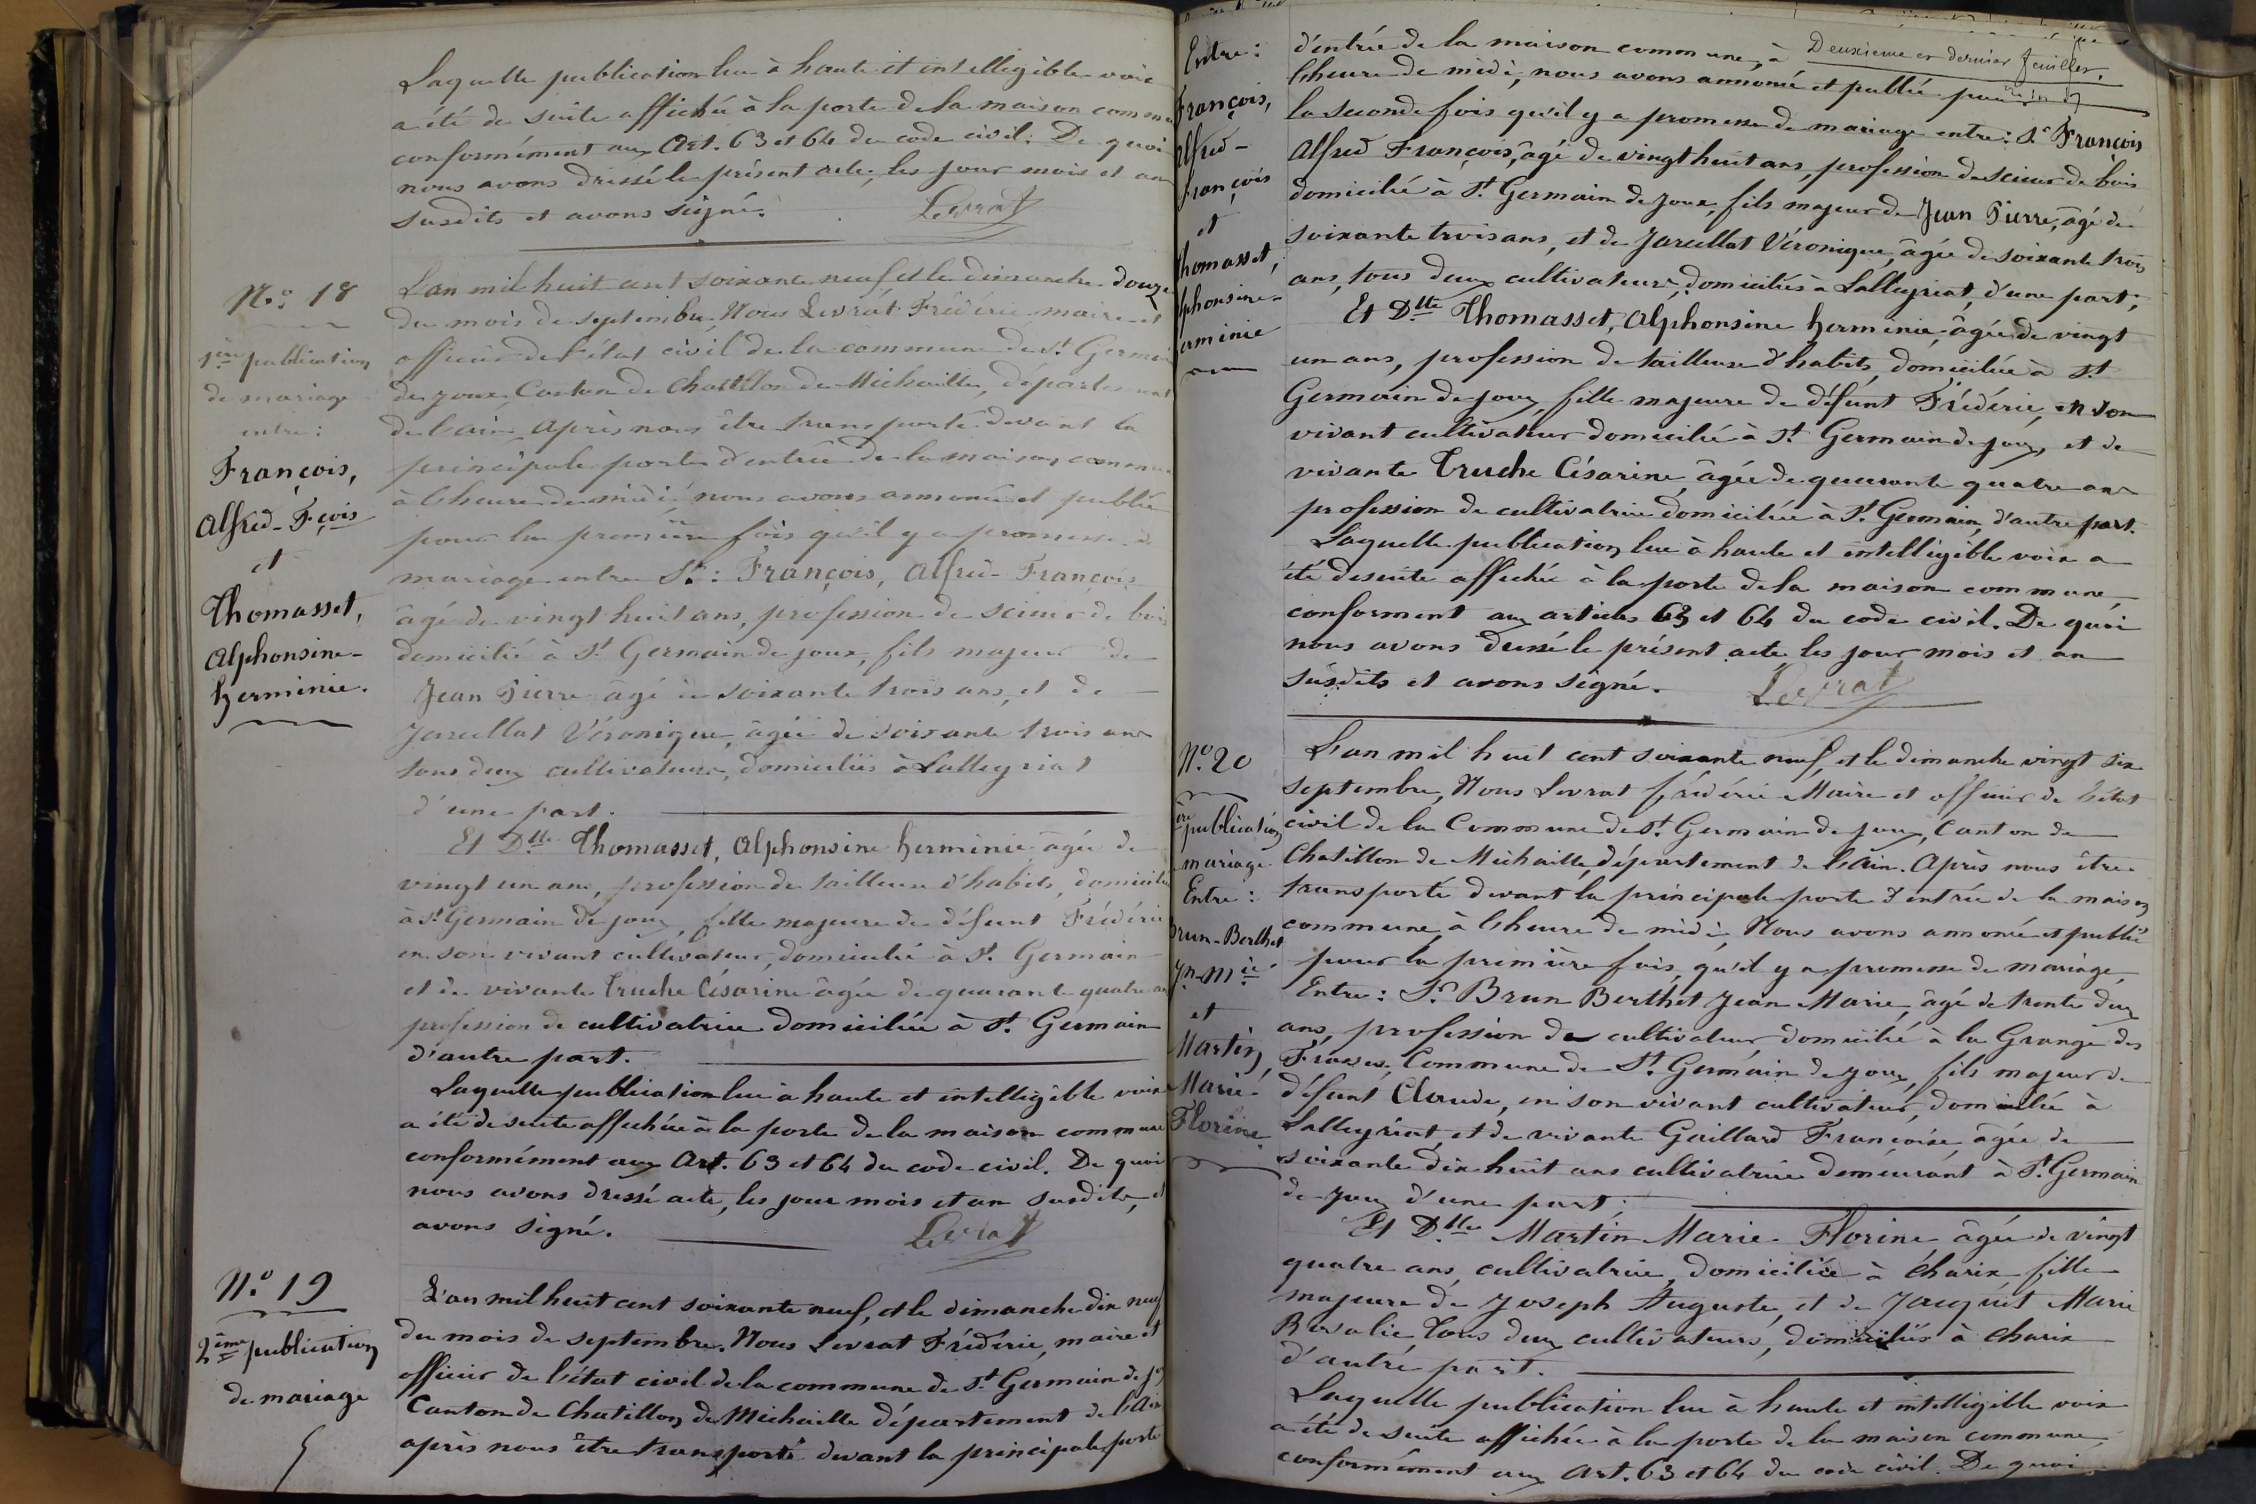 Laquelle publication lue à haute et intelligible voix
a été de suite affichée à la porte de la maison commune
conformément aux Art. 63 et 64 du code civil. De quoi
nous avons dressé le présent acte, les jour mois et an
susdits et avons signé. Levrat
N.o 18
1ère publication
de mariage
entre:
François,
Alfred-Fçois
et
Thomasset,
Alphonsine-
herminie.
L'an mil huit cent soixante neuf et le dimanche douze
du mois de septembre, Nous Levrat Frédéric maire et
officier de l'état civil de la commune de St Germain
de joux, Canton de Chatillon de Michaille, département
de l'ain, après nous être transporté devant la
principale porte d'entrée de la maison commune
à l'heure de midi, nous avons annoncé et publié
pour la première fois qu'il y a promesse de
mariage entre Sr: François, Alfred-François
âgé de vingt huit ans, profession de scieur de bois
domicilié à St Germain de joux, fils majeur de
Jean Pierre âgé de soixante trois ans, et de
Jarcellat Véronique, âgée de soixante trois ans
tous deux cultivateurs, domiciliés à Lalleyriat
d'une part.
Et Dlle Thomasset, Alphonsine herminie âgée de
vingt un ans, profession de tailleuse d'habits, domiciliée
à St Germain de joux, fille majeure de défunt Frédéric
en son vivant cultivateur, domicilié à St. Germain
et de vivante Truche Césarine âgée de quarante quatre ans
profession de cultivatrice domiciliée à St. Germain
d'autre part.
Laquelle publication lue à haute et intelligible voix
a été de suite affichée à la porte de la maison commune
conformément aux Art. 63 et 64 du code civil. De quoi
nous avons dressé acte, les jour mois et an susdits, et
avons signé. Levrat
N.o 19
2ème publication
de mariage
L'an mil huit cent soixante neuf, et le dimanche dix neuf
du mois de septembre. Nous Levrat Frédéric, maire et
officier de l'état civil de la commune de St Germain de jx
Canton de Chatillon de Michaille département de l'Ain
après nous être transporté devant la principale porte
Entre:
François,
Alfred-
françois
et
Thomasset,
Alphonsine-
herminie
Deuxième et dernier feuillet.
d'entrée de la maison commune, à
l'heure de midi, nous avons annoncé et publié pour
la seconde fois qu'il y a promesse de mariage entre: Sr François
Alfred François, âgé de vingt huit ans, profession de scieur de bois
domicilié à St Germain de joux, fils majeur de Jean Pierre, âgé de
soixante trois ans, et de Jarcellat Véronique, âgée de soixante trois
ans, tous deux cultivateurs, domiciliés à Lalleyriat, d'une part;
Et Dlle Thomasset, Alphonsine herminie, âgée de vingt
un ans, profession de tailleuse d'habits, domiciliée à St
Germain de joux, fille majeure de défunt Frédéric, en son
vivant cultivateur domicilié à St Germain de joux, et de
vivante Truche Césarine, âgée de quarante quatre ans
profession de cultivatrice domiciliée à St Germain, d'autre part.
Laquelle publication lue à haute et intelligible voix a
été de suite affichée à la porte de la maison commune,
conforment aux articles 63 et 64 du code civil. De quoi
nous avons dressé le présent acte les jour mois et an
susdits et avons signé. Levrat
N.o 20
ère publication
mariage
Entre:
Brun-Berthet
Jn Mie
et
Martin,
Marie-
Florine
L'an mil huit cent soixante neuf, et le dimanche vingt six
septembre, Nous Levrat frédéric Maire et officier de l'état
civil de la Commune de St Germain de joux, Canton de
Chatillon de Michaille, département de l'Ain. Après nous être
transporté devant la principale porte d'entrée de la maison
commune, à l'heure de midi, Nous avons annoncé et publié
pour la première fois, qu'il y a promesse de mariage,
Entre: Sr Brun Berthet Jean Marie, âgé de trente deux
ans, profession de cultivateur domicilié à la Grange des
Frasses, Commune de St Germain de joux, fils majeur de
défunt Claude, en son vivant cultivateur, domicilié à
Lalleyriat, et de vivante Gaillard Françoise âgée de
soixante dix huit ans cultivatrice demeurant à St Germain
de joux d'une part;
Et Dlle Martin Marie-Florine, âgée de vingt
quatre ans, cultivatrice, domiciliée à Charix, fille
majeure de Joseph Auguste, et de Jacquet Marie
Rosalie, Tous deux cultivateurs, domiciliés à Charix
d'autre part.
Laquelle publication lue à haute et intelligible voix
a été de suite affichée à la porte de la maison commune,
conformément aux Art. 63 et 64 du code civil. De quoi